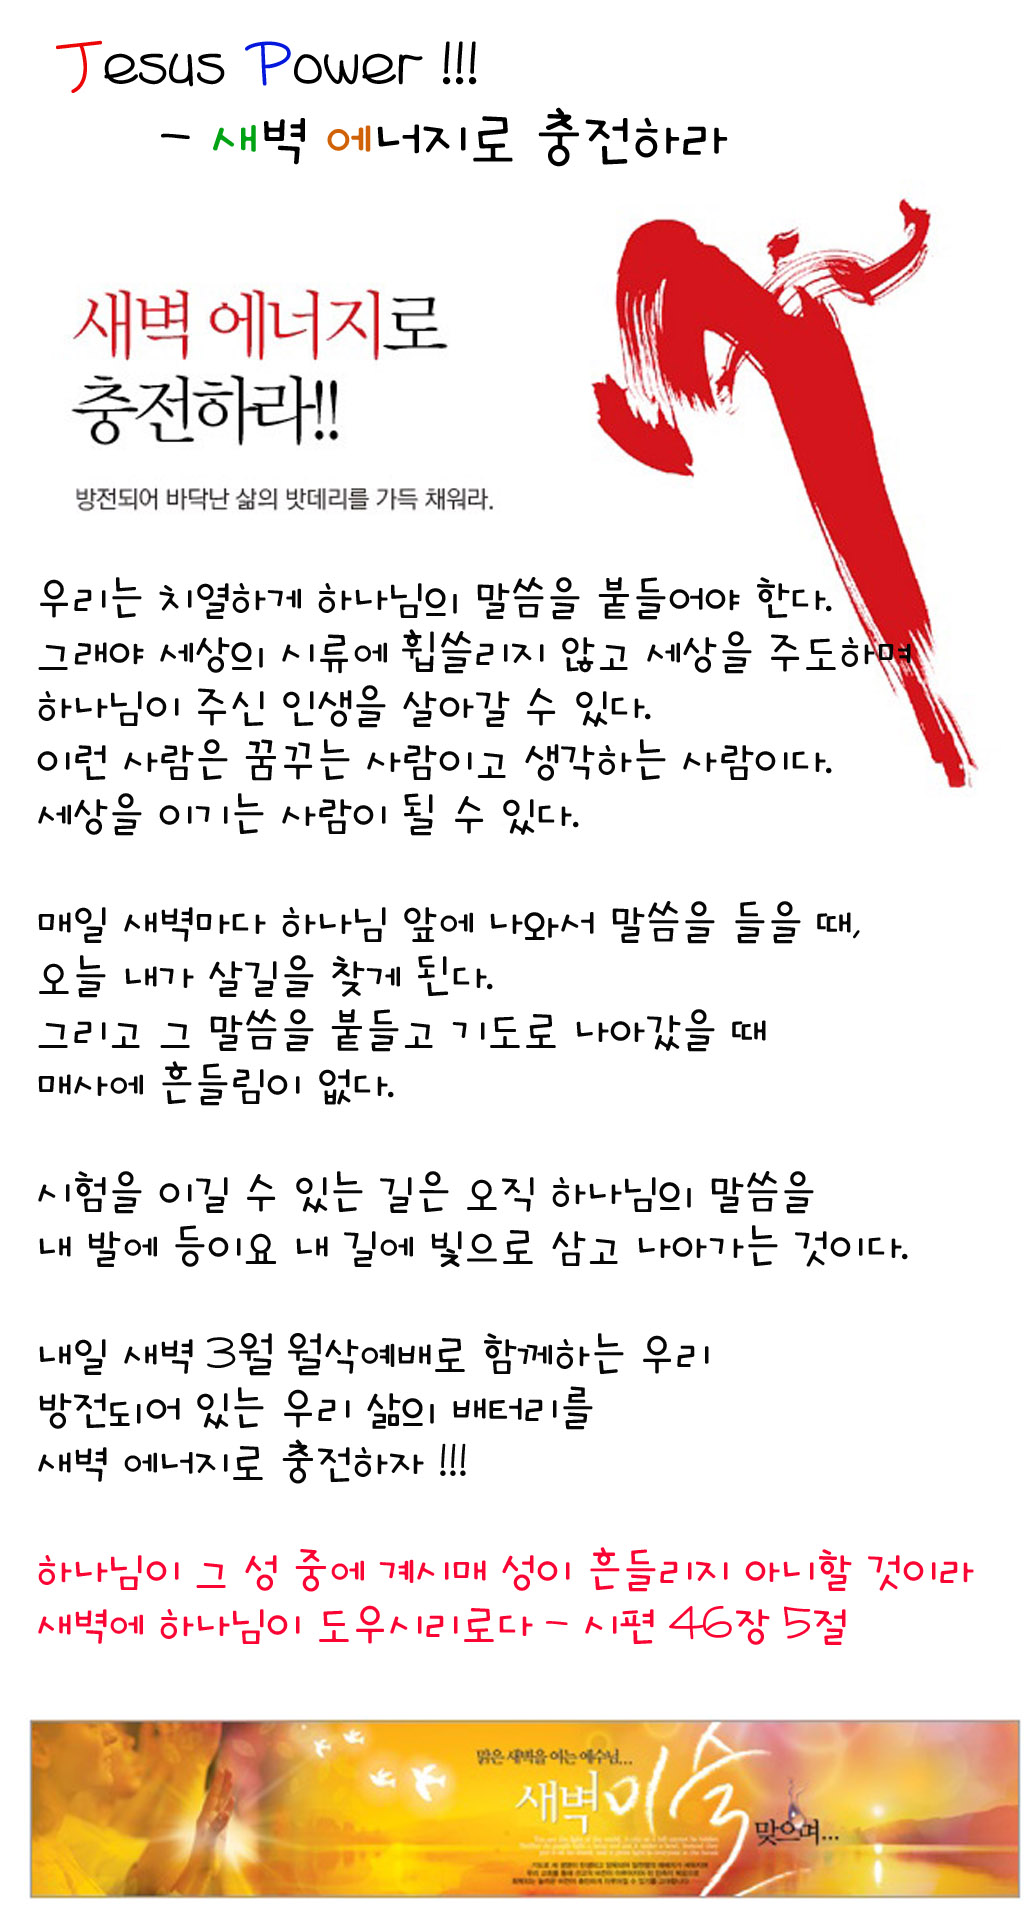 Jesus Power !!!
- 새벽 에너지로 충전하라
새벽 에너지로
충전하라!!
방전되어 바닥난 삶의 밧데리를 가득 채워라.
우리는 치열하게 하나님의 말씀을 붙들어야 한다.
그래야 세상의 시류에 휩쓸리지 않고 세상을 주도하며
하나님이 주신 인생을 살아갈 수 있다.
이런 사람은 꿈꾸는 사람이고 생각하는 사람이다.
세상을 이기는 사람이 될 수 있다.
매일 새벽마다 하나님 앞에 나와서 말씀을 들을 때,
오늘 내가 살길을 찾게 된다.
그리고 그 말씀을 붙들고 기도로 나아갔을 때
매사에 흔들림이 없다.
시험을 이길 수 있는 길은 오직 하나님의 말씀을
내 발에 등이요 내 길에 빛으로 삼고 나아가는 것이다.
내일 새벽 3월 월삭예배로 함께하는 우리
방전되어 있는 우리 삶의 배터리를
새벽 에너지로 충전하자 !!!
하나님이 그 성 중에 계시매 성이 흔들리지 아니할 것이라
새벽에 하나님이 도우시리로다 - 시편 46장 5절
맑은 새벽을 여는 예수님...
새벽이슬
맞으며...